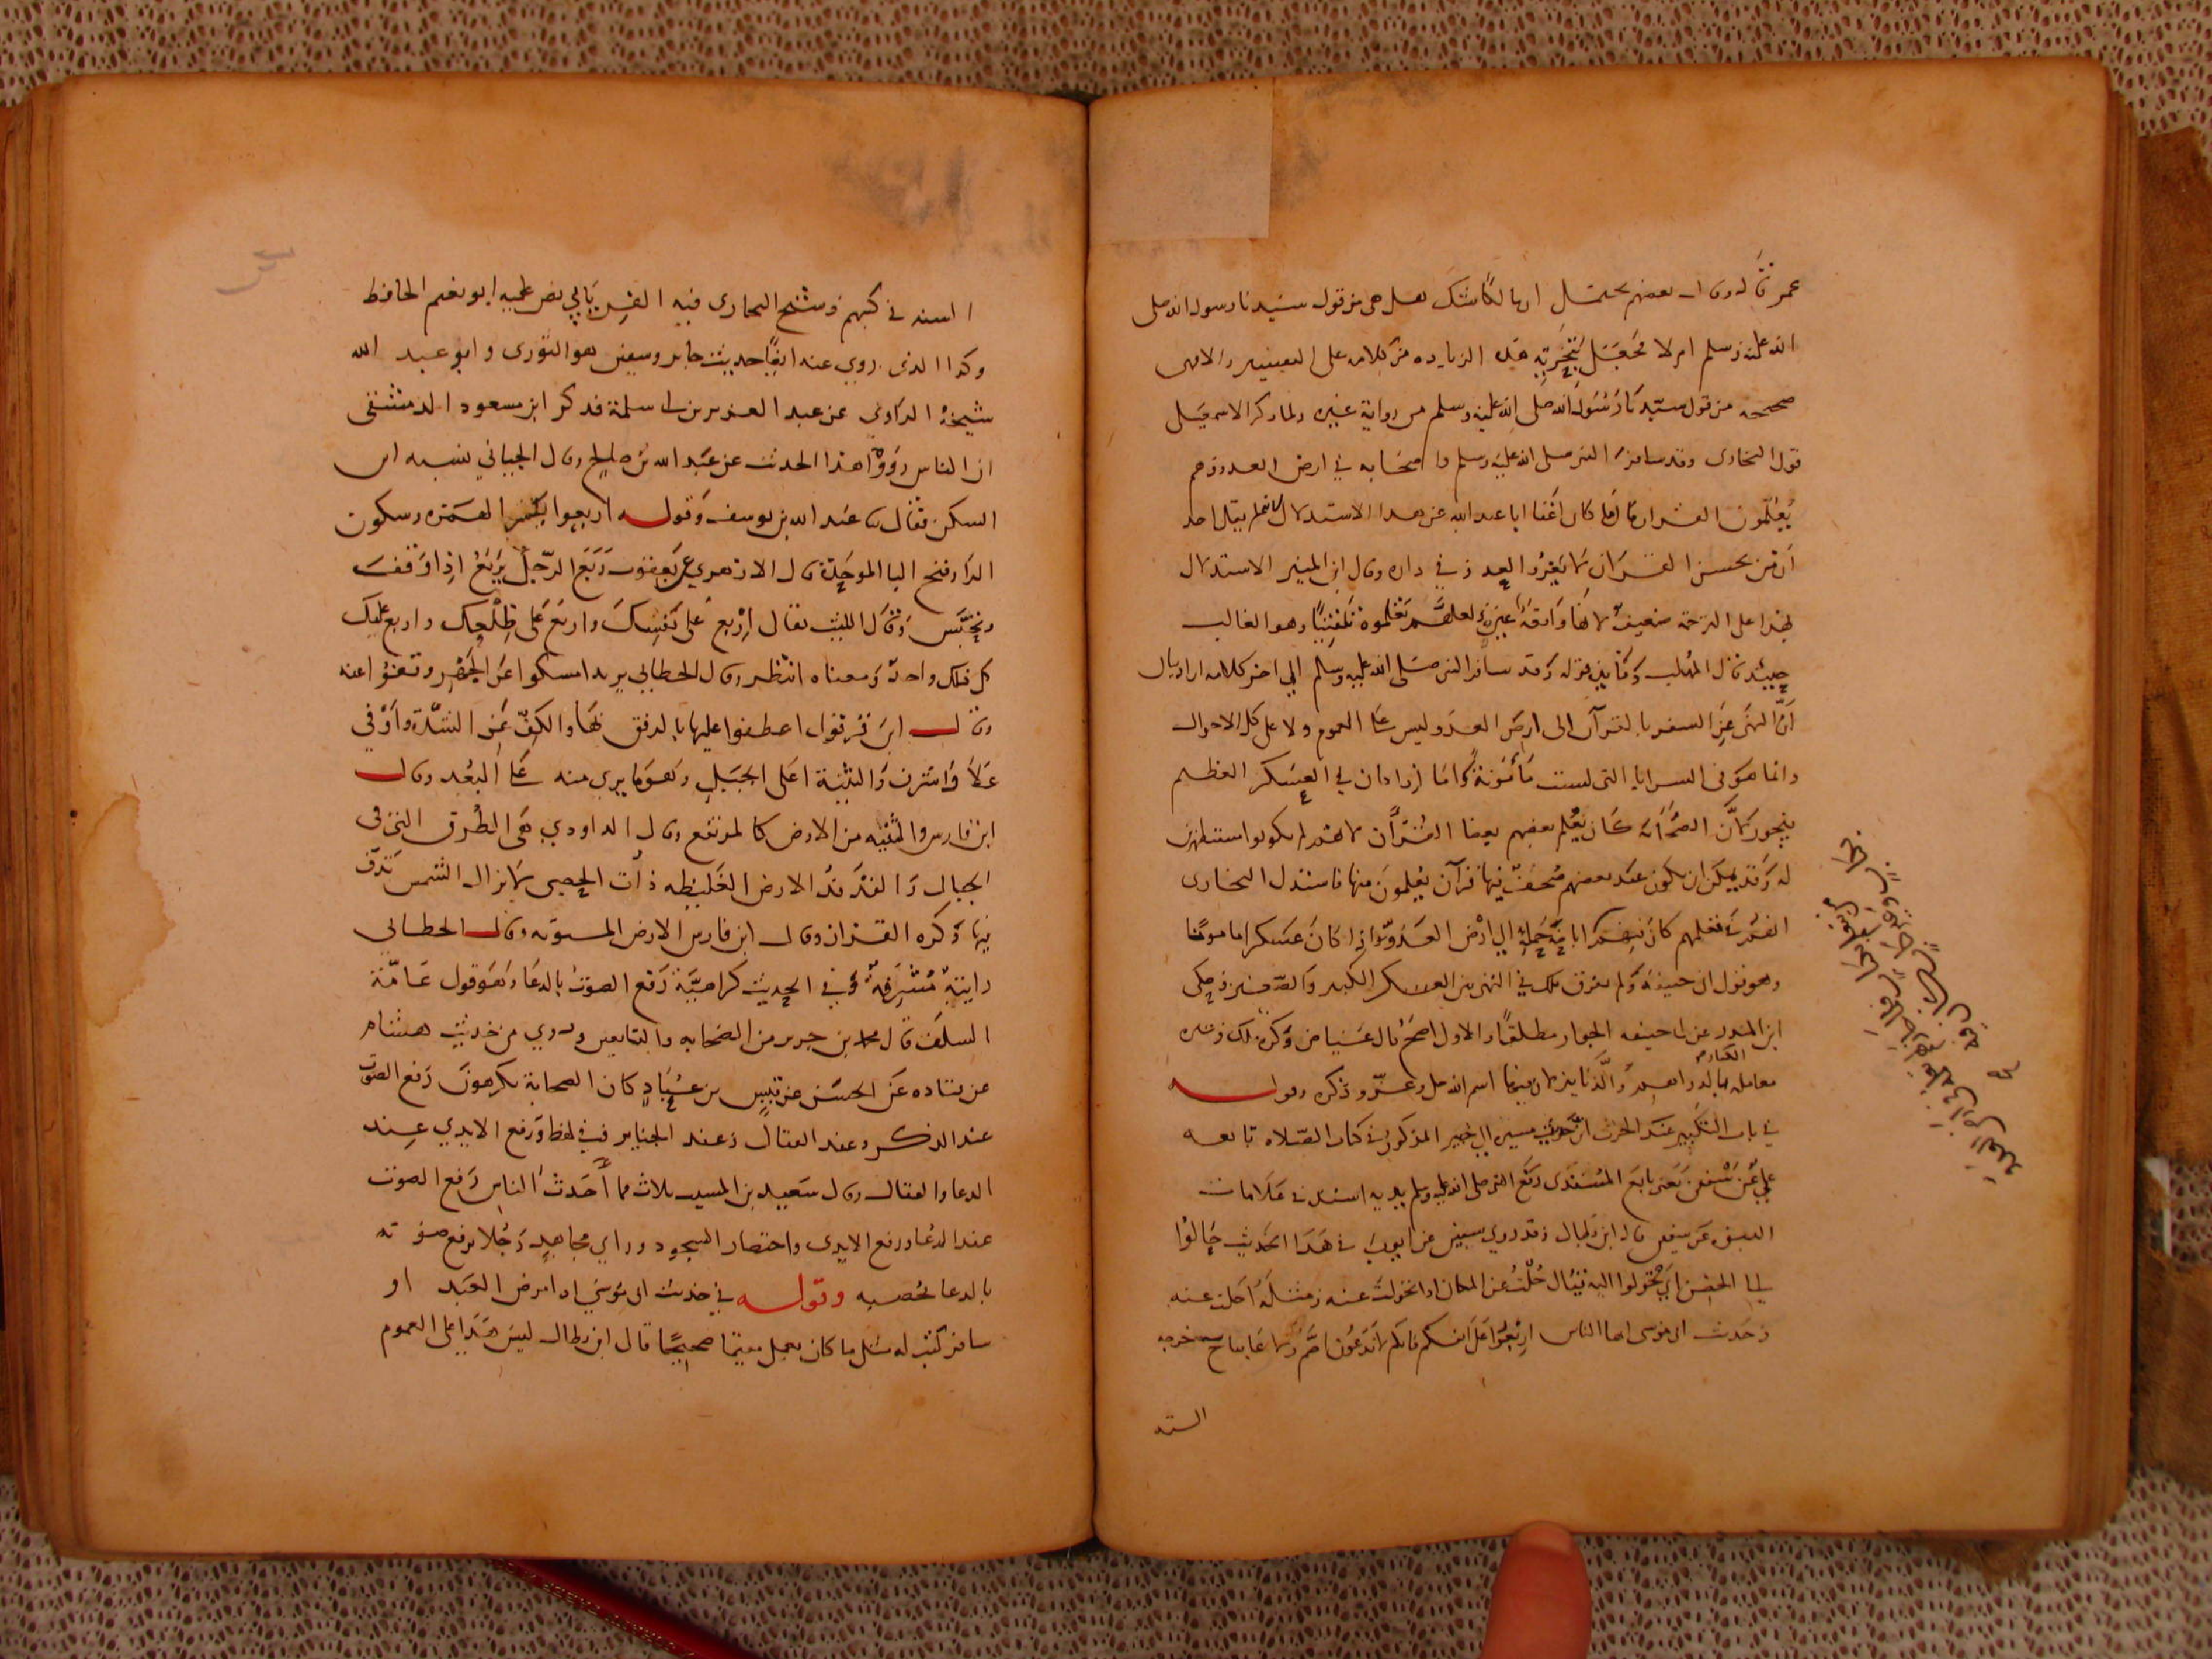 عمر قاله وقال بعضهم يحتمل انها لما شك هل هي من قول سيدنا رسول الله صلى
الله عليه وسلم ام لا فجعل بتحريه هذه الزياده من كلامه على التفسير والا فهي
صحيحه من قول سيدنا رسول الله صلى الله عليه وسلم من رواية غيره ولما ذكر الاسمعيلي
قول البخارى وقد سافر النبي صلى الله عليه وسلم واصحابه في ارض العدو وهم
يعلمون القران قال ما كان اغنا ابا عبد الله عن هذا الاستدلال لم يقل احد
ان من يحسن القران لا يغزوا العدو في داره وقال ابن المنير الاستدلال
بهذا على الترجمة ضعيف لانها واقعة عين ولعلهم تعلموه تلقينا وهو الغالب
حينئذ قال المهلب وفايده قوله وقد سافر النبي صلى الله عليه وسلم الي اخر كلامه اراد بيان
ان النهى عن السفر بالقرآن الى ارض العدو ليس على العموم ولا على كل الاحوال
وانما هو في السرايا التى ليست مأمونة واما اذا كان في العسكر العظيم
فيجوز لان الصحابة كان يعلم بعضهم بعضا القرآن لانهم لم يكونوا مستظهرين
له وقد يمكن ان يكون عند بعضهم صحف فيها قرآن يعلمون منها فاستدل البخارى
انهم في تعلمهم كان فيهم اباحة حمله الي ارض العدو اذا كان عسكرا مامونا
وهو قول ابى حنيفة ولم يفرق ملك في النهي بين العسكر الكبير والصغير وحكى
ابن المنذر عن ابى حنيفه الجواز مطلقا والاول اصح قال عياض وكره ملك وغيره
معاملة الكفار بالدراهم والدنانير لان فيها اسم الله جل وعز وذكره وقوله
في باب التكبير عند الحرب ان حديث مسيره الي خيبر المذكور في كتاب الصلاه تابعه
علي عن سفين يعنى تابع المسندى رفع النبي صلى الله عليه وسلم يديه اسنده في علامات
النبوة عن سفين قال ابن بطال وقد روي سفين عن ايوب في هذا الحديث حالوا
الي الحصن اي تحولوا اليه يقال حلت عن المكان اذا تحولت عنه ومثله احلت عنه
وحديث ابى موسى ايها الناس اربعوا على انفسكم فانكم لا تدعون اصم ولا غايبا خرجه
الستة
الستة في كتبهم وشيخ البخارى فيه الفريابي نص عليه ابو نعيم الحافظ
وكذا الذى روي عنه ايضا حديث جابر وسفين هو الثورى وابو عبد الله
شيخه الراوي عن عبد العزيز بن ابى سلمة فذكر ابن مسعود الدمشقى
ان الناس رووا هذا الحديث عن عبد الله بن صالح وقال الجياني نسبه ابن
السكن فقال عبد الله بن يوسف وقوله اربعوا بكسر الهمزه وسكون
الرا وفتح البا الموحدة قال الازهري عن يعقوب ربع الرجل يربع اذا وقف
وتحبس وقال الليث يقال اربع على نفسك واربع على ظلعك واربع عليك
كل ذلك واحد ومعناه انتظر وقال الخطابي يريد امسكوا عن الجهر وقفوا عنه
وقال ابن قرقول اعطفوا عليها بالرفق بها والكف عن الشدة واوفي
علا واشرف والثنية اعلى الجبل وهو ما يرى منه على البعد وقال
ابن فارس والثنيه من الارض كالمرتفع وقال الداودي هي الطرق التي في
الجبال والفدفد الارض الغليظه ذات الحصى لا تزال الشمس تدف
فيها ذكره القزاز وقال ابن فارس الارض المستويه وقال الخطابي
رابية مشرفة وفي الحديث كراهية رفع الصوت بالدعا وهو قول عامة
السلف قال محمد بن جرير من الصحابه والتابعين وروي من حديث هشام
عن قتاده عن الحسن عن قيس بن عباد كان الصحابة يكرهون رفع الصوت
عند الذكر وعند القتال وعند الجنايز وفي لفظ ورفع الايدي عند
الدعا والقتال وقال سعيد بن المسيب ثلاث مما أحدث الناس رفع الصوت
عند الدعا ورفع الايدى واختصار السجود وراي مجاهد رجلا يرفع صوته
بالدعا فحصبه وقوله في حديث ابى موسي اذا مرض العبد او
سافر كتب له مثل ما كان يعمل مقيما صحيحا قال ابن بطال ليس هذا على العموم